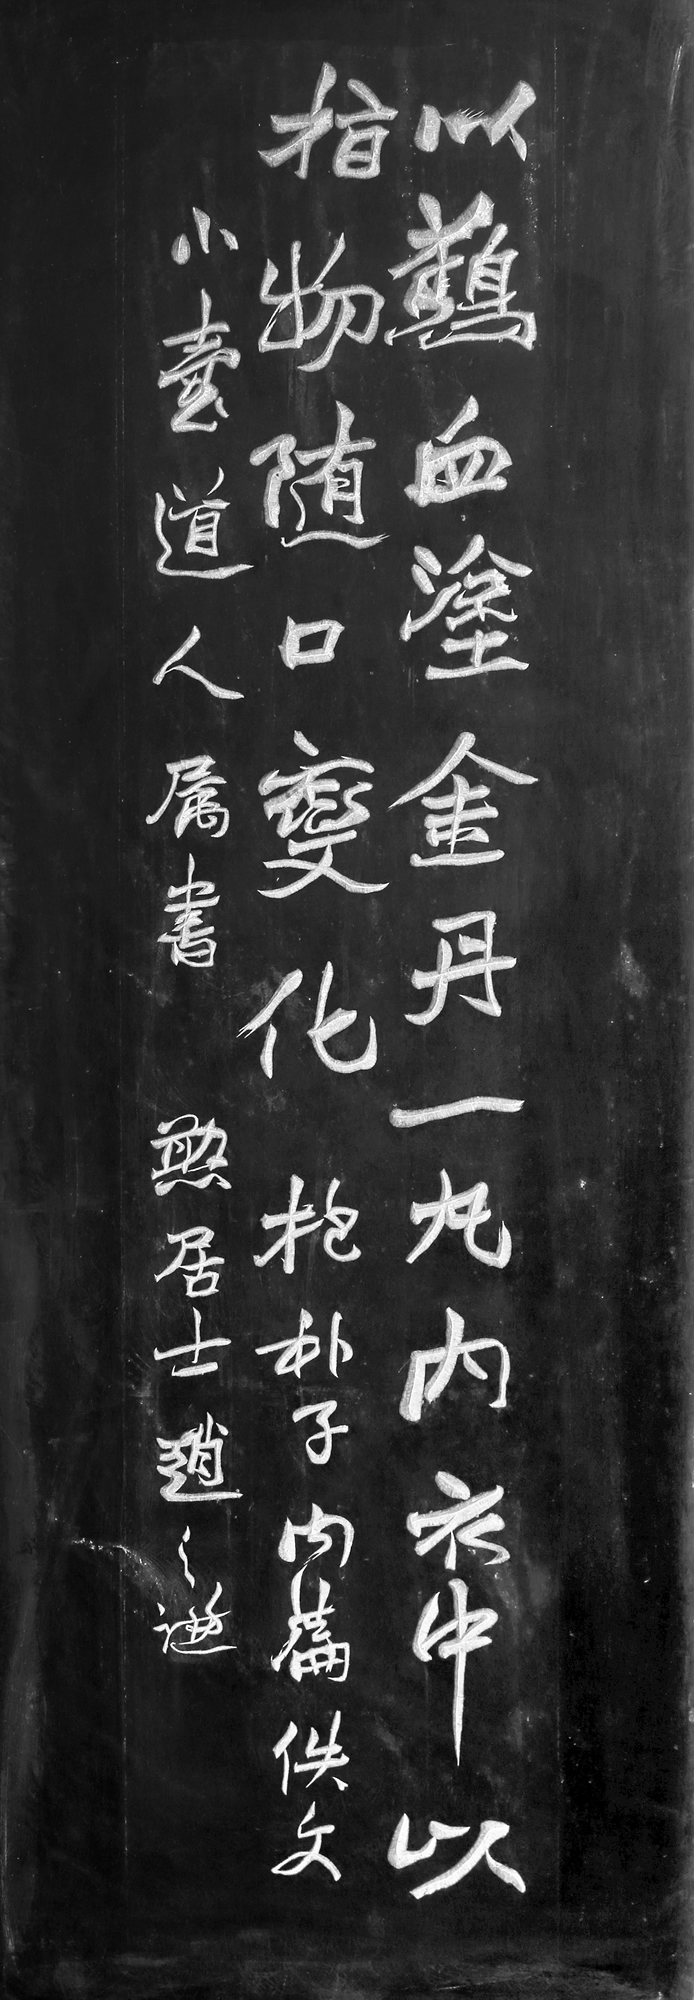 以鷄血塗金丹一丸内衣中以
指物随口變化 抱朴子内篇佚文
小壷道人属書 憨居士趙之謙